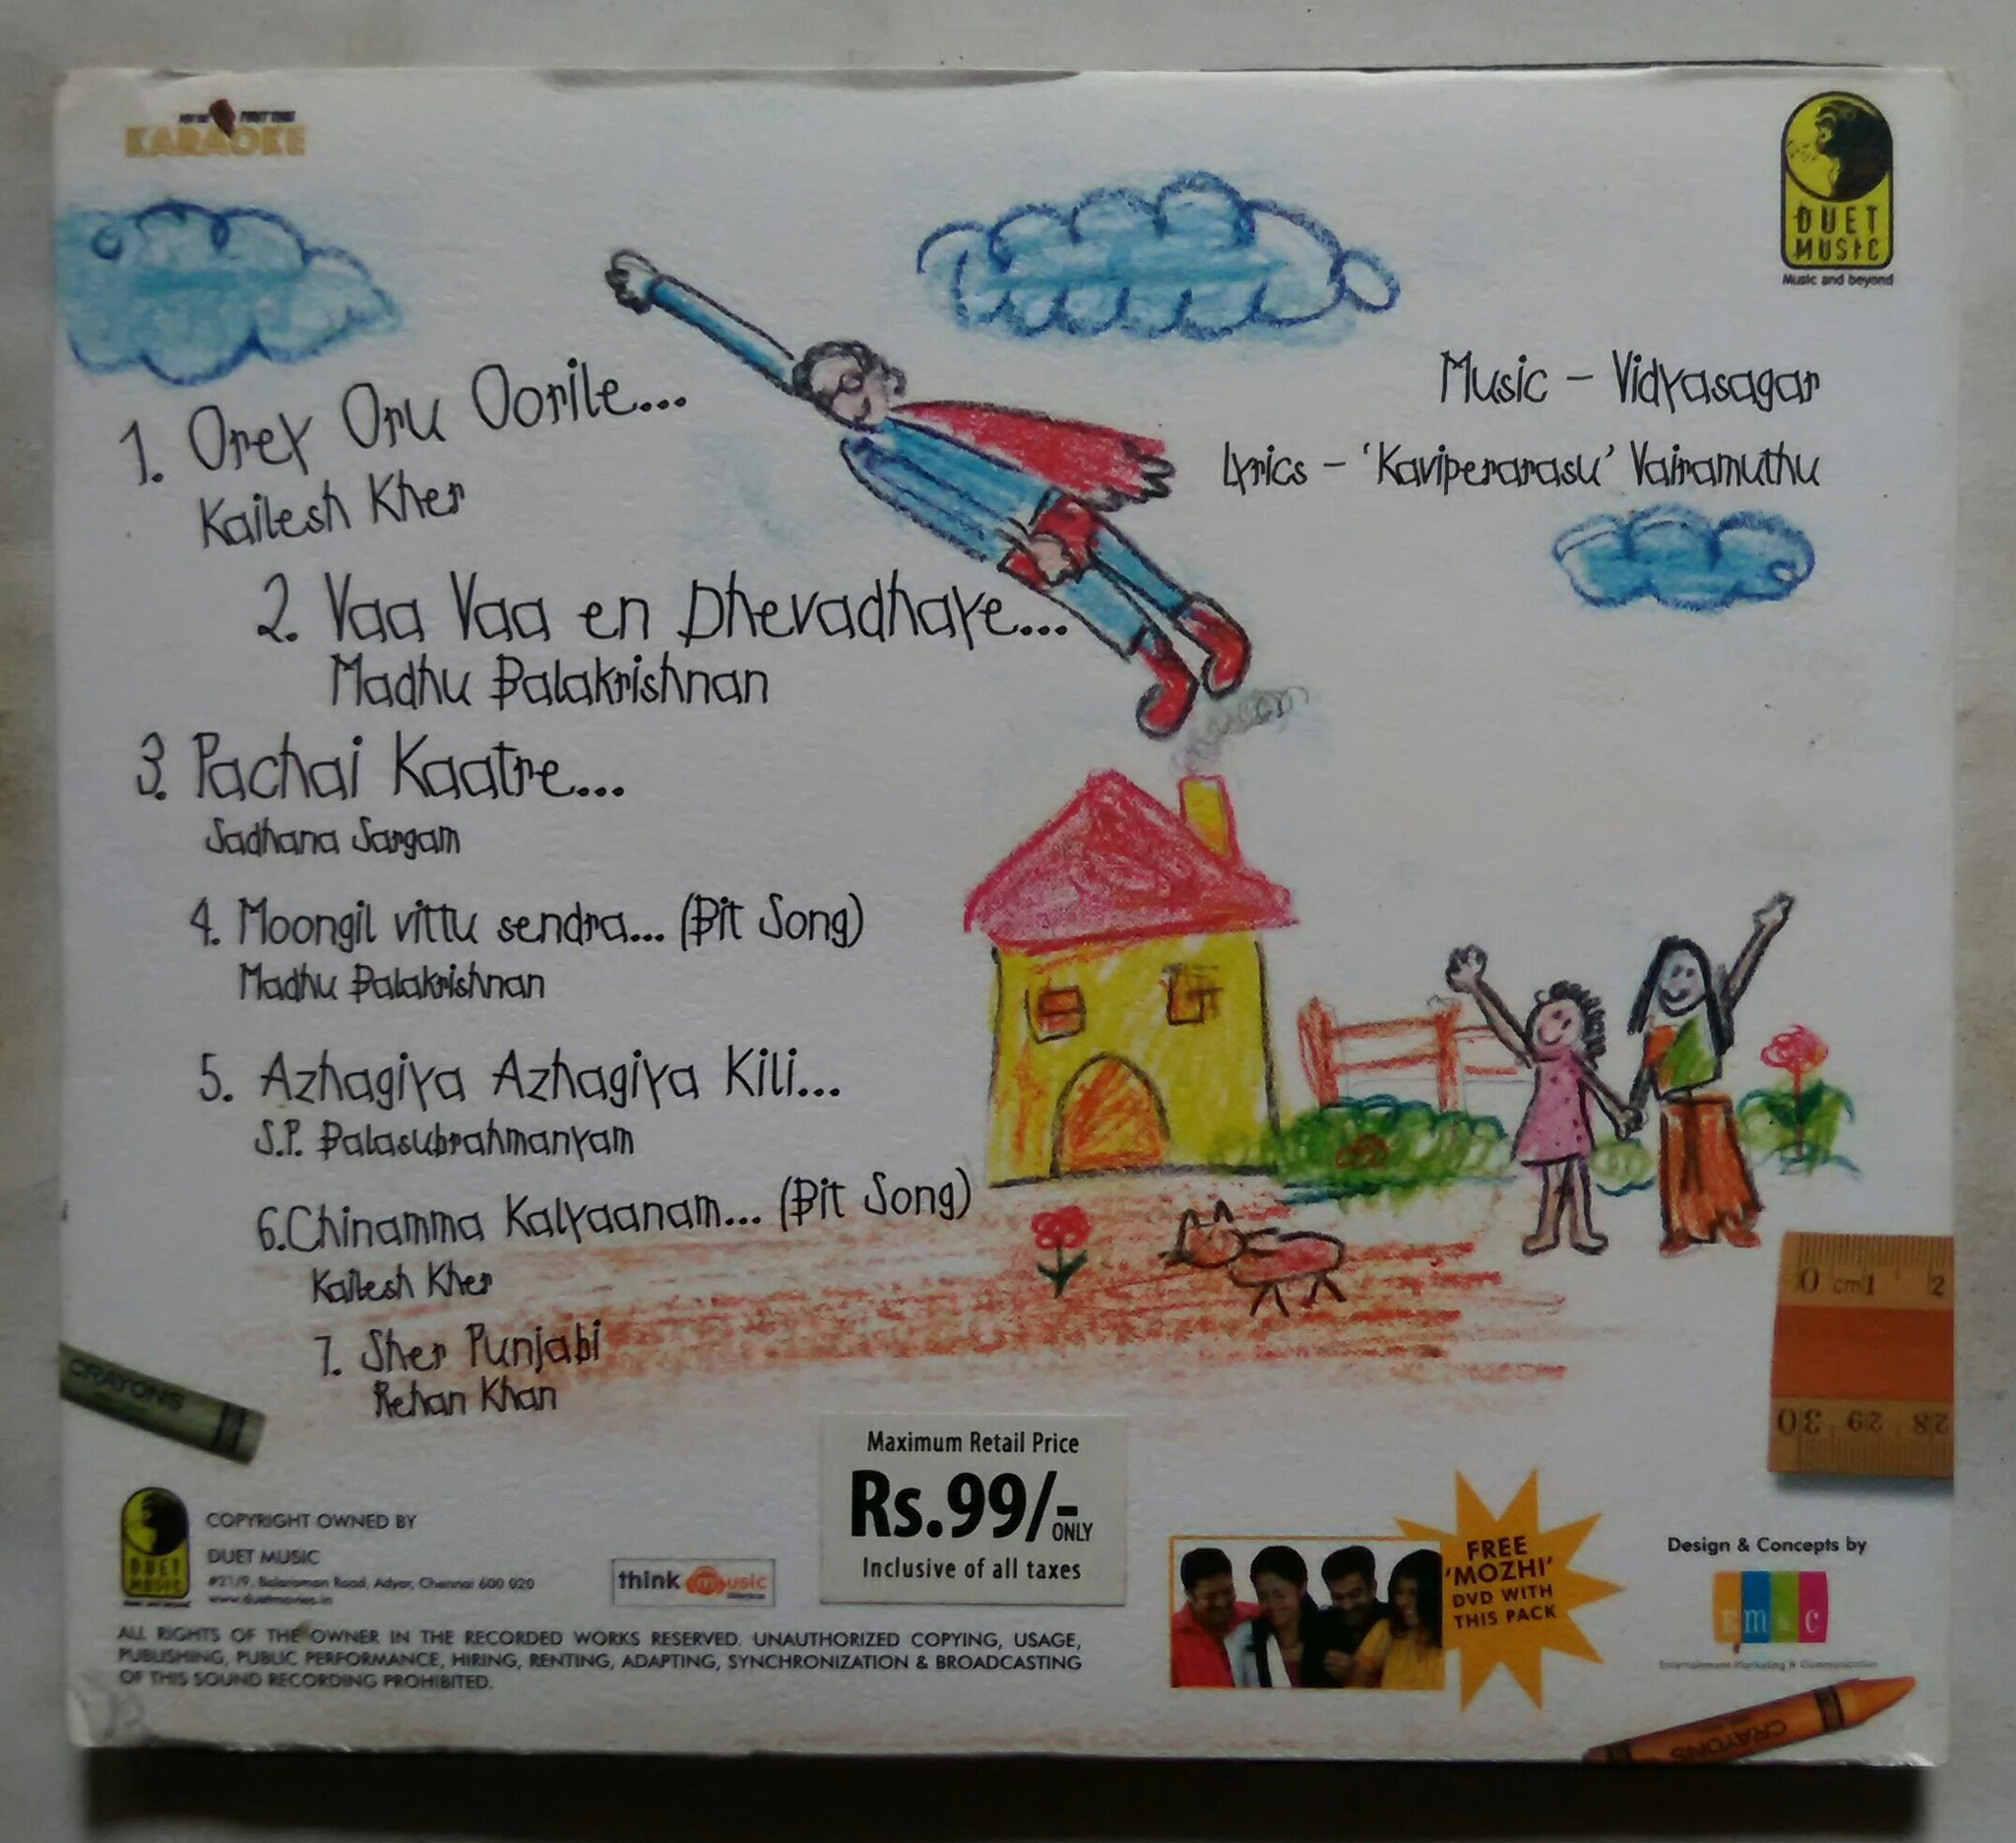 KARAOKE
DUET
MUSIC
Music and beyond
Music – Vidyasagar
Lyrics – 'Kaviperarasu' Vairamuthu
1. Orey Oru Oorile...
Kailesh Kher
2. Vaa Vaa en Dhevadhaye...
Madhu Balakrishnan
3. Pachai Kaatre...
Sadhana Sargam
4. Moongil vittu sendra... (Bit Song)
Madhu Balakrishnan
5. Azhagiya Azhagiya Kili...
S.P. Balasubrahmanyam
6.Chinamma Kalyaanam... (Bit Song)
Kailesh Kher
7. Sher Punjabi
Rehan Khan
0 cm1 2
30 29 28
CRAYONS
Maximum Retail Price
Rs.99/-
ONLY
Inclusive of all taxes
DUET
MUSIC
COPYRIGHT OWNED BY
DUET MUSIC
#21/9, Balaraman Road, Adyar, Chennai 600 020
www.duetmovies.in
think music
FREE
'MOZHI'
DVD WITH
THIS PACK
Design & Concepts by
Em&c
Entertainment Marketing & Communication
ALL RIGHTS OF THE OWNER IN THE RECORDED WORKS RESERVED. UNAUTHORIZED COPYING, USAGE,
PUBLISHING, PUBLIC PERFORMANCE, HIRING, RENTING, ADAPTING, SYNCHRONIZATION & BROADCASTING
OF THIS SOUND RECORDING PROHIBITED.
CRAYONS